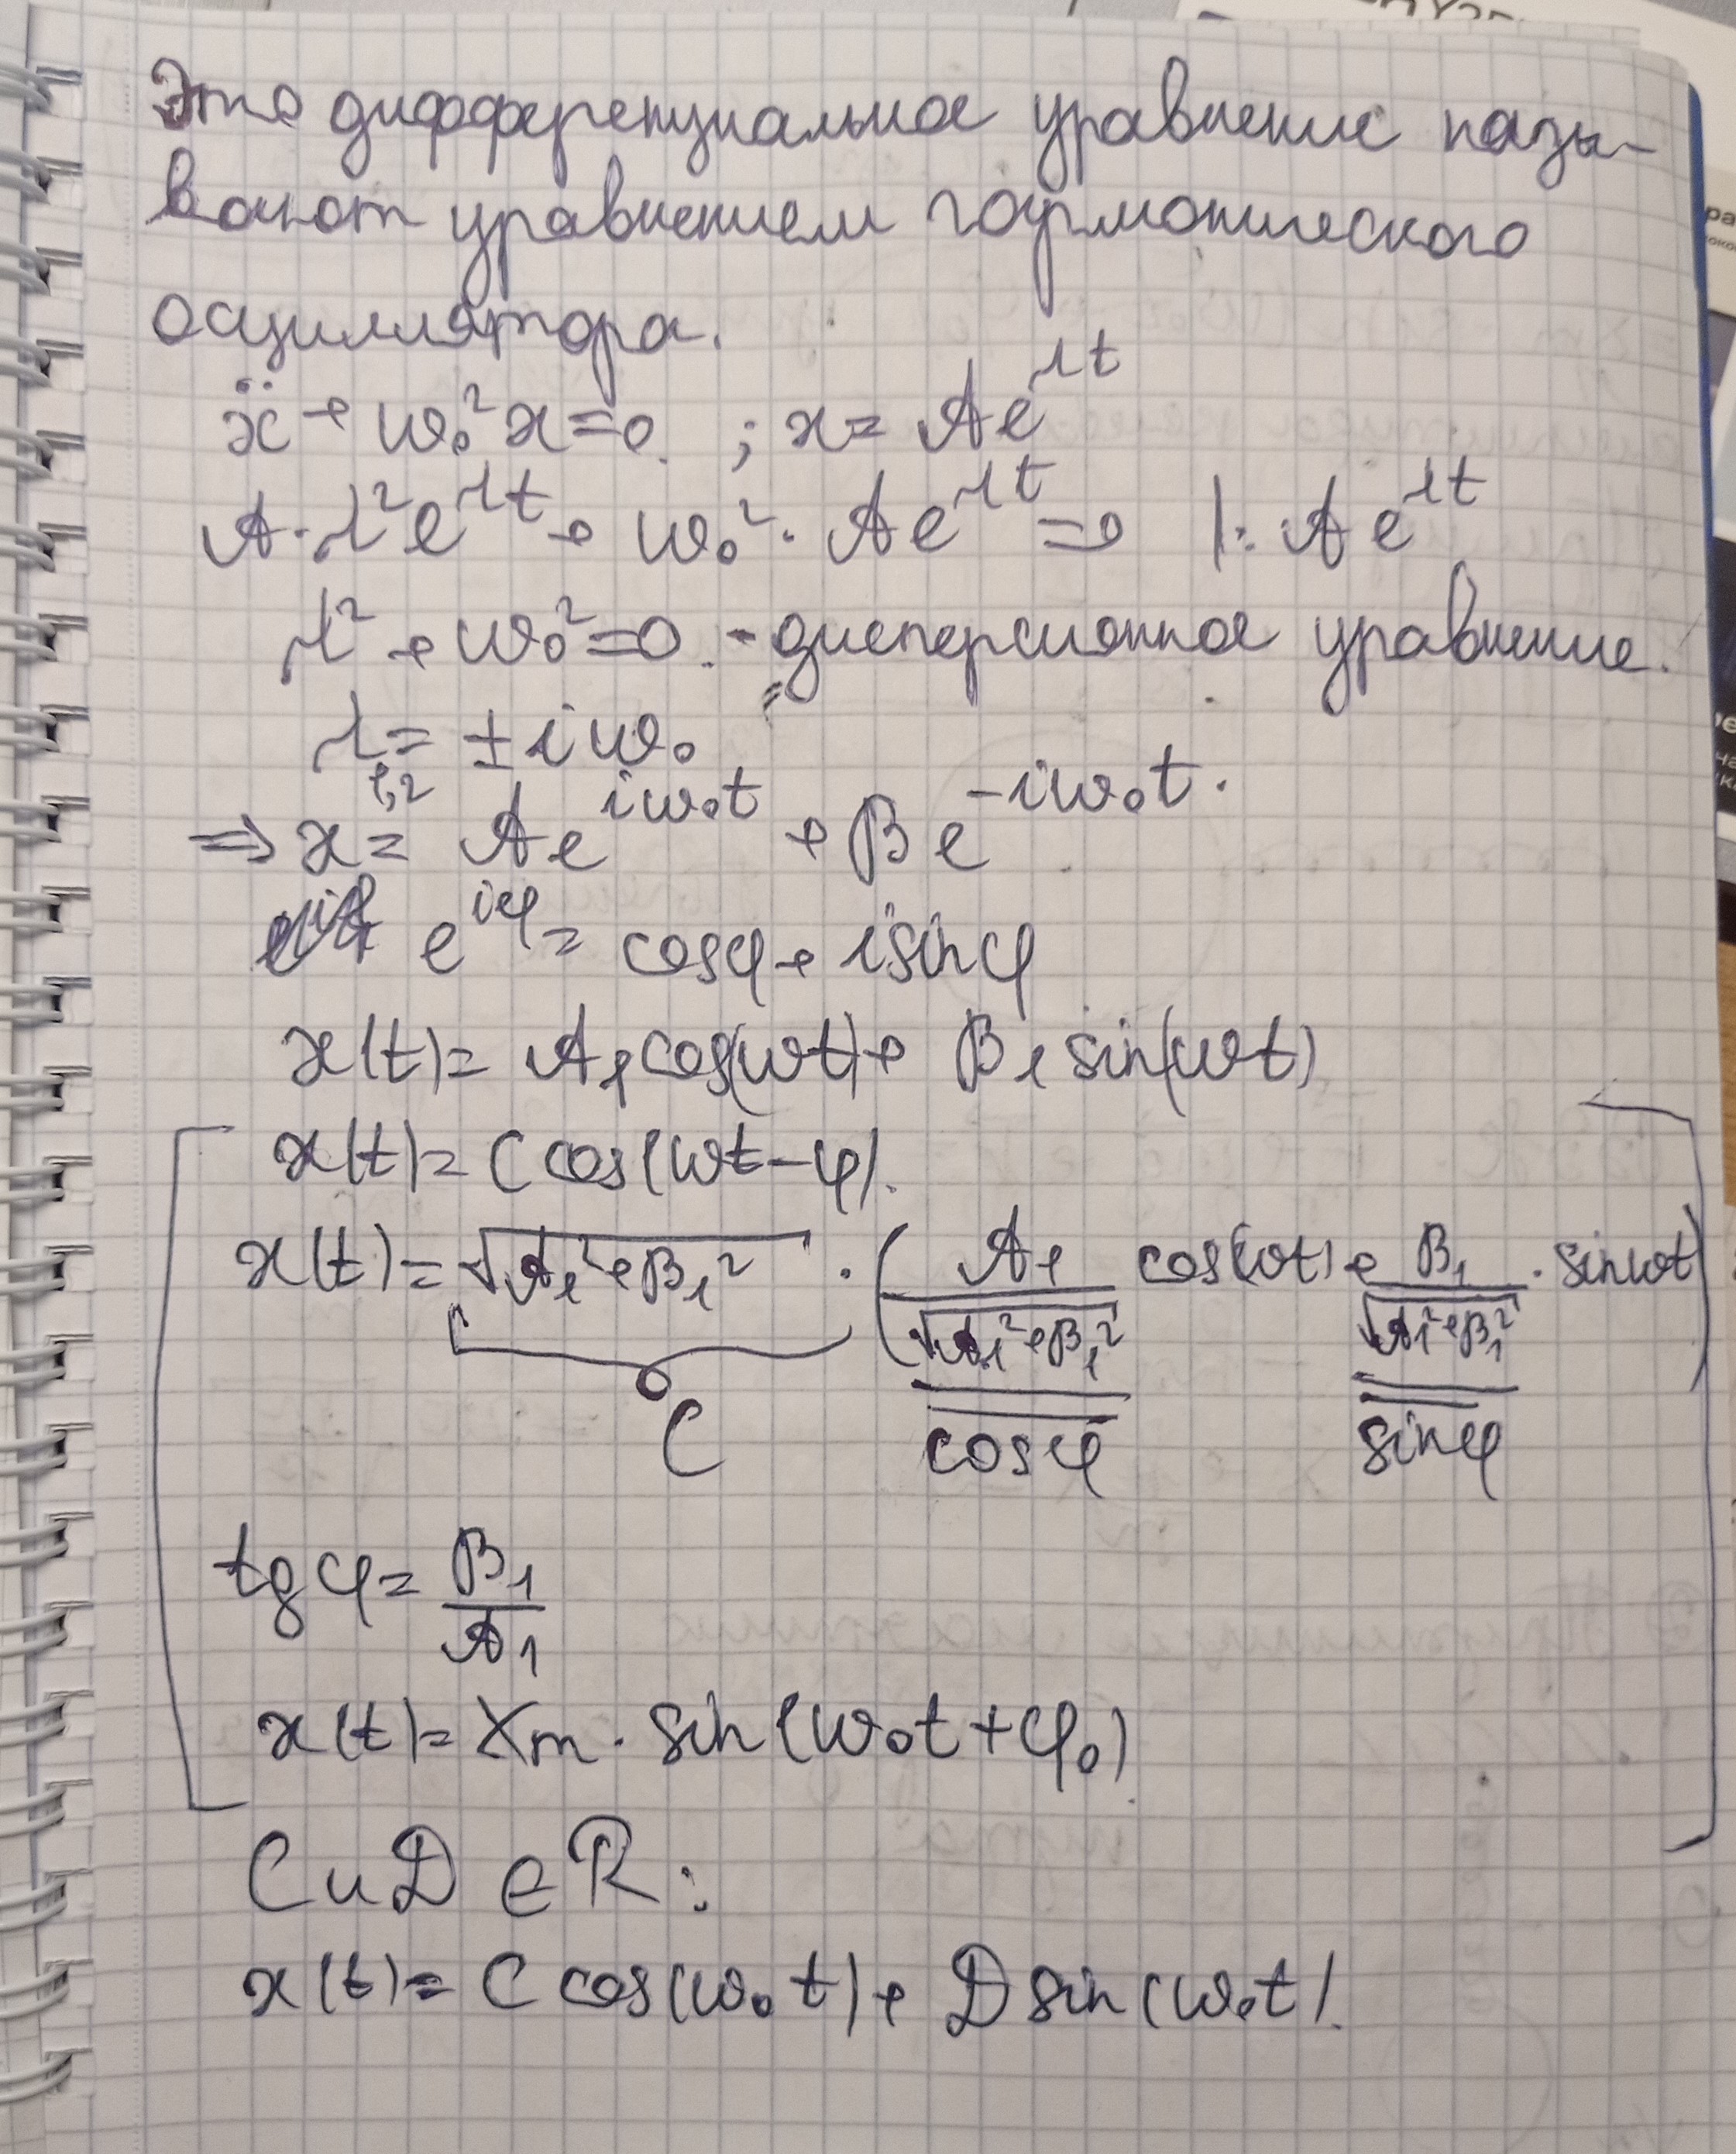 Это дифференциальное уравнение назы-
вают уравнением гармонического
осциллятора.
ẍ + ω₀²x = 0. ; x = Ae^{λt}
A·λ²e^{λt} + ω₀²·Ae^{λt} = 0 |: Ae^{λt}
λ² + ω₀² = 0. - дисперсионное уравнение.
λ₁,₂ = ± iω₀
⇒ x = Ae^{iω₀t} + Be^{-iω₀t}.
e^{iφ} = cosφ + i sinφ
x(t) = A₁cos(ωt) + B₁sin(ωt)
x(t) = C cos(ωt - φ).
x(t) = √(A₁² + B₁²) · (A₁/√(A₁² + B₁²) cos(ωt) + B₁/√(A₁² + B₁²) · sinωt)
C cosφ sinφ
tgφ = B₁/A₁
x(t) = Xm · sin(ω₀t + φ₀).
C и D ∈ R:
x(t) = C cos(ω₀t) + D sin(ω₀t).